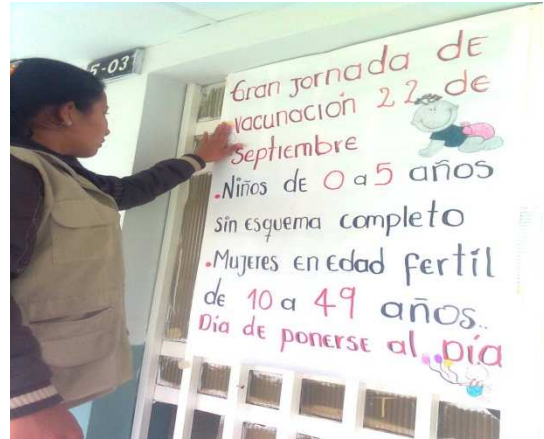 5-03
Gran Jornada dE
vacunación 22 de
Septiembre
.Niños dE 0 a 5 años
sin esquema completo
.Mujeres en Edad fertil
de 10 a 49 años..
Día de ponerse al día